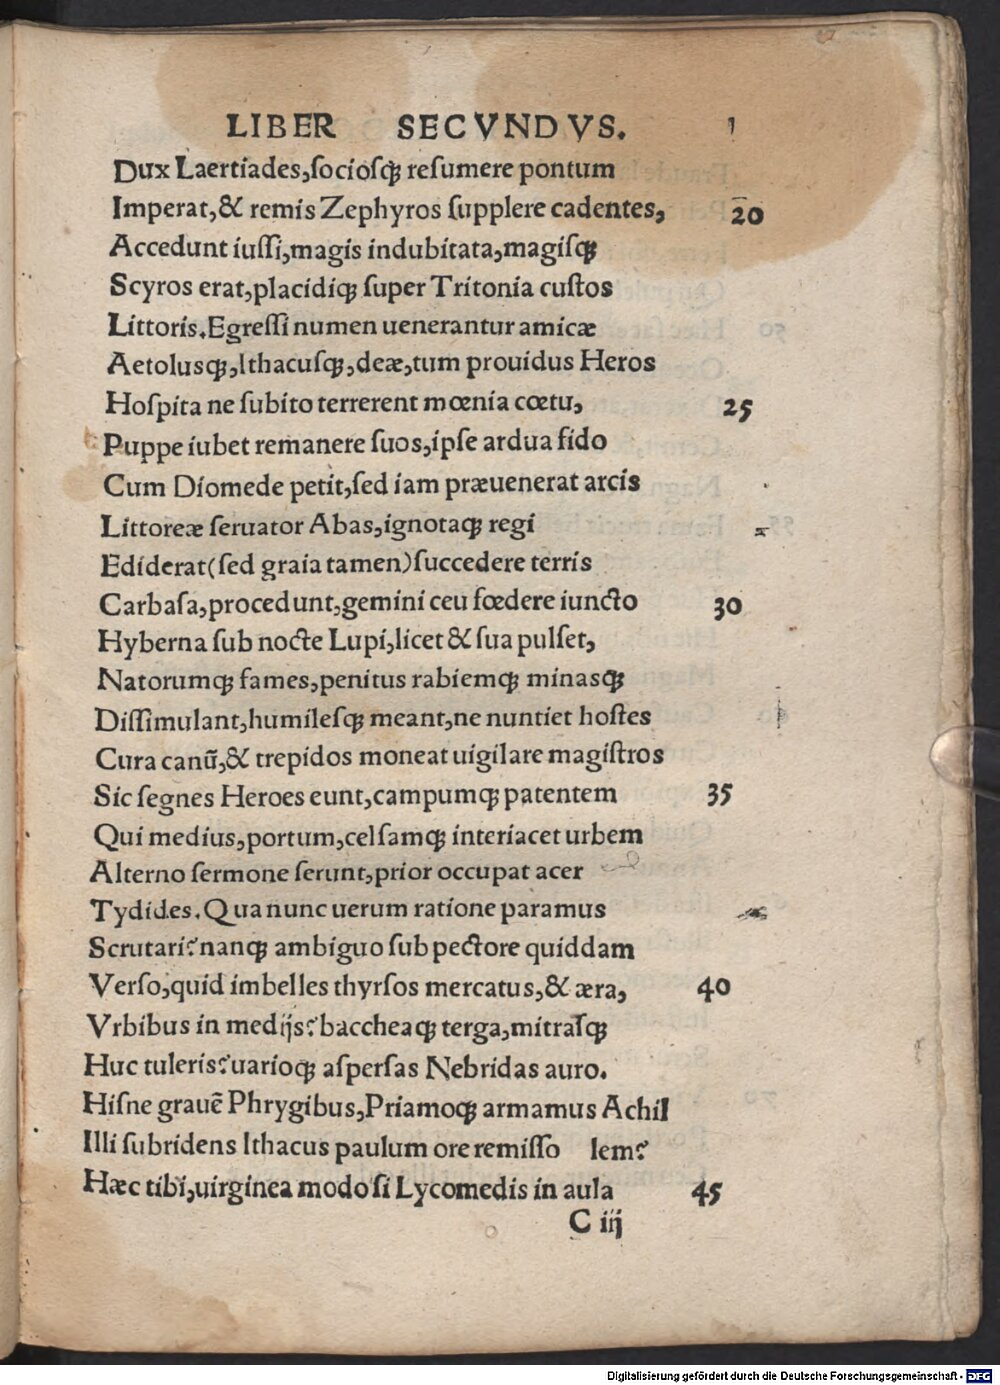 LIBER SECVNDVS. 1
Dux Laertiades,ſocioſqꝫ reſumere pontum
Imperat,& remis Zephyros ſupplere cadentes, 20
Accedunt iuſſi,magis indubitata,magiſqꝫ
Scyros erat,placidiqꝫ ſuper Tritonia cuſtos
Littoris.Egreſſi numen uenerantur amicæ
Aetoluſqꝫ,Ithacuſqꝫ,deæ,tum prouidus Heros
Hoſpita ne ſubito terrerent mœnia cœtu, 25
Puppe iubet remanere ſuos,ipſe ardua fido
Cum Diomede petit,ſed iam præuenerat arcis
Littoreæ ſeruator Abas,ignotaqꝫ regi
Ediderat(ſed graia tamen)ſuccedere terris
Carbaſa,procedunt,gemini ceu fœdere iuncto 30
Hyberna ſub nocte Lupi,licet & ſua pulſet,
Natorumqꝫ fames,penitus rabiemqꝫ minasqꝫ
Diſſimulant,humileſqꝫ meant,ne nuntiet hoſtes
Cura canū,& trepidos moneat uigilare magiſtros
Sic ſegnes Heroes eunt,campumqꝫ patentem 35
Qui medius,portum,celſamqꝫ interiacet urbem
Alterno ſermone ſerunt,prior occupat acer
Tydides.Qua nunc uerum ratione paramus
Scrutari?nanqꝫ ambiguo ſub pectore quiddam
Verſo,quid imbelles thyrſos mercatus,& æra, 40
Vrbibus in medijs?baccheaqꝫ terga,mitraſqꝫ
Huc tuleris?uarioqꝫ aſperſas Nebridas auro.
Hiſne grauē Phrygibus,Priamoqꝫ armamus Achil
Illi ſubridens Ithacus paulum ore remiſſo lem?
Hæc tibi,uirginea modo ſi Lycomedis in aula 45
C iij
Digitalisierung gefördert durch die Deutsche Forschungsgemeinschaft - DFG